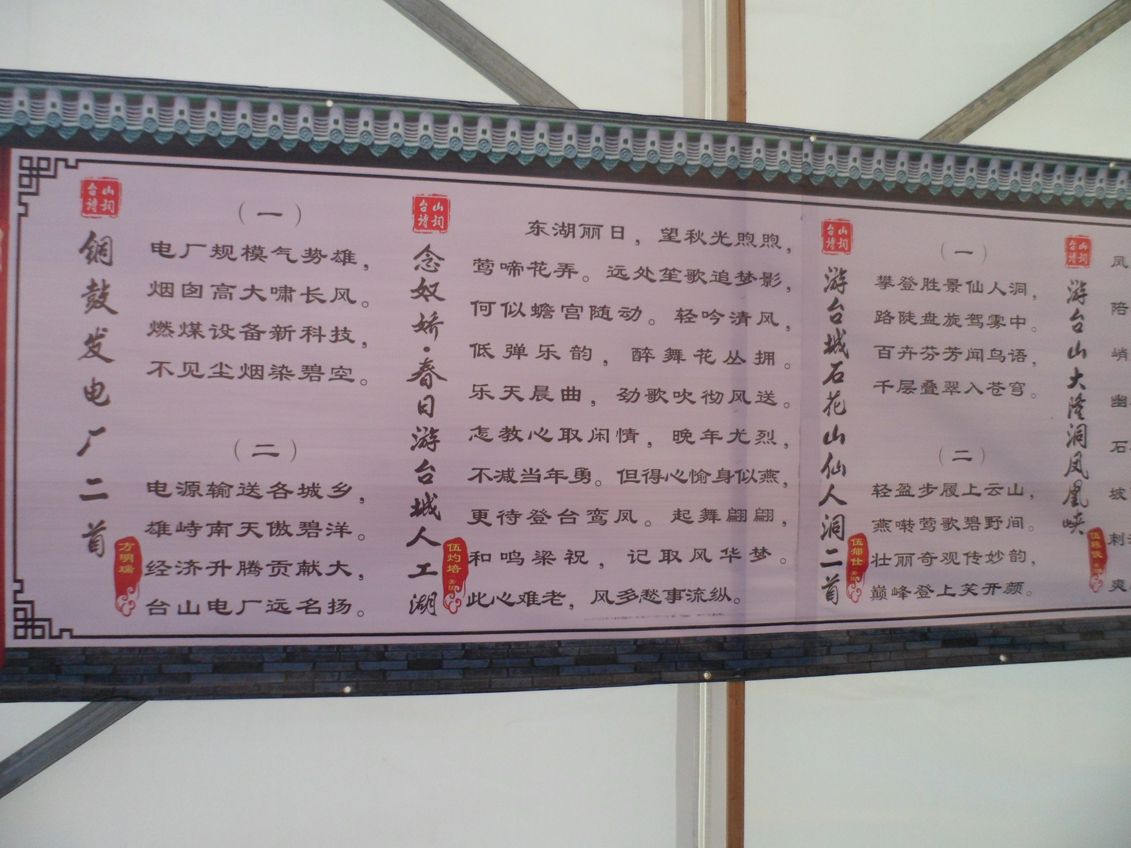 台山诗词
铜鼓发电厂二首
方明瑞
（一）
电厂规模气势雄，
烟囱高大啸长风。
燃煤设备新科技，
不见尘烟染碧空。
（二）
电源输送各城乡，
雄峙南天傲碧洋。
经济升腾贡献大，
台山电厂远名扬。
台山诗词
念奴娇·春日游台城人工湖
伍灼培
东湖丽日，望秋光煦煦，
莺啼花弄。远处笙歌追梦影，
何似蟾宫随动。轻吟清风，
低弹乐韵，醉舞花丛拥。
乐天晨曲，劲歌吹彻风送。
怎教心取闲情，晚年尤烈，
不减当年勇。但得心愉身似燕，
更待登台鸾凤。起舞翩翩，
和鸣梁祝，记取风华梦。
此心难老，风多愁事流纵。
台山诗词
游台城石花山仙人洞二首
伍郁仕
（一）
攀登胜景仙人洞，
路陡盘旋驾雾中。
百卉芬芳闻鸟语，
千层叠翠入苍穹。
（二）
轻盈步履上云山，
燕啭莺歌碧野间。
壮丽奇观传妙韵，
巅峰登上笑开颜。
台山诗词
游台山大隆洞凤凰峡
凤
陪
峭
幽
石
坡
刺
爽